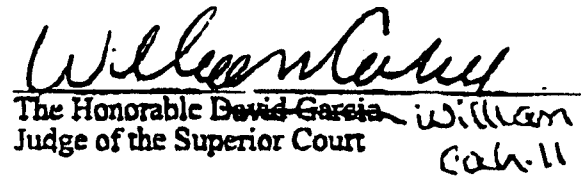 William Cahill
The Honorable David Garcia William
Judge of the Superior Court Cahill